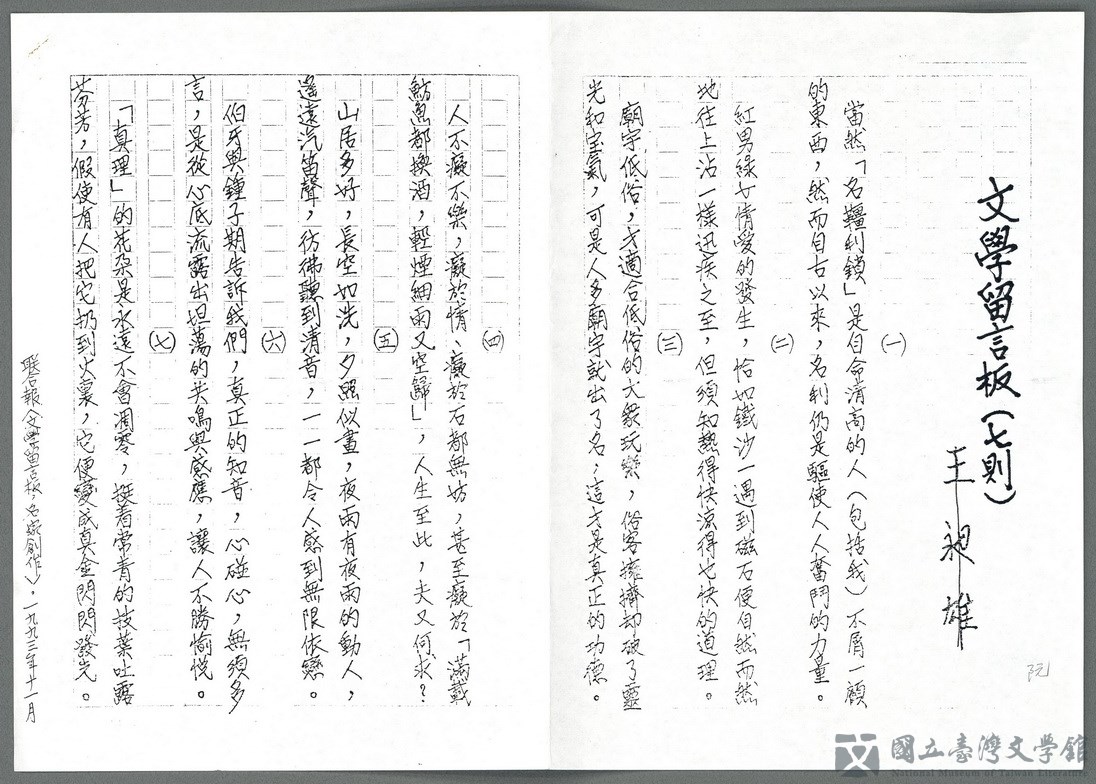 文學留言板(七則)
王昶雄
(一)
當然「名韁利鎖」是自命清高的人(包括我)不屑一顧
的東西,然而自古以來,名利仍是驅使人人奮鬥的力量。
(二)
紅男綠女情愛的發生,恰如鐵沙一遇到磁石便自然而然
地往上沾一樣迅疾之至,但須知熱得快涼得也快的道理。
(三)
廟宇低俗,才適合低俗的大眾玩樂,俗客擁擠却破了靈
光和宝氣,可是人多廟宇就出了名,這才是真正的功德。
(四)
人不癡不樂,癡於情、癡於石都無妨,甚至癡於「滿載
魴魚都換酒,輕煙細雨又空歸」,人生至此,夫又何求?
(五)
山居多好,長空如洗,夕照似畫,夜雨有夜雨的動人,
遙遠汽笛聲,彷彿聽到清音,一一都令人感到無限依戀。
(六)
伯牙與鍾子期告訴我們,真正的知音,心碰心,無須多
言,是從心底流露出坦蕩的共鳴與感應,讓人不勝愉悅。
(七)
「真理」的花朵是永遠不會凋零,挺着常青的枝葉吐露
芬芳,假使有人把它扔到火裏,它便變成真金閃閃發光。
聯合報(文學留言板,名家創作),一九九三年十一月
阮
國立臺灣文學館
National Museum of Taiwan Literature